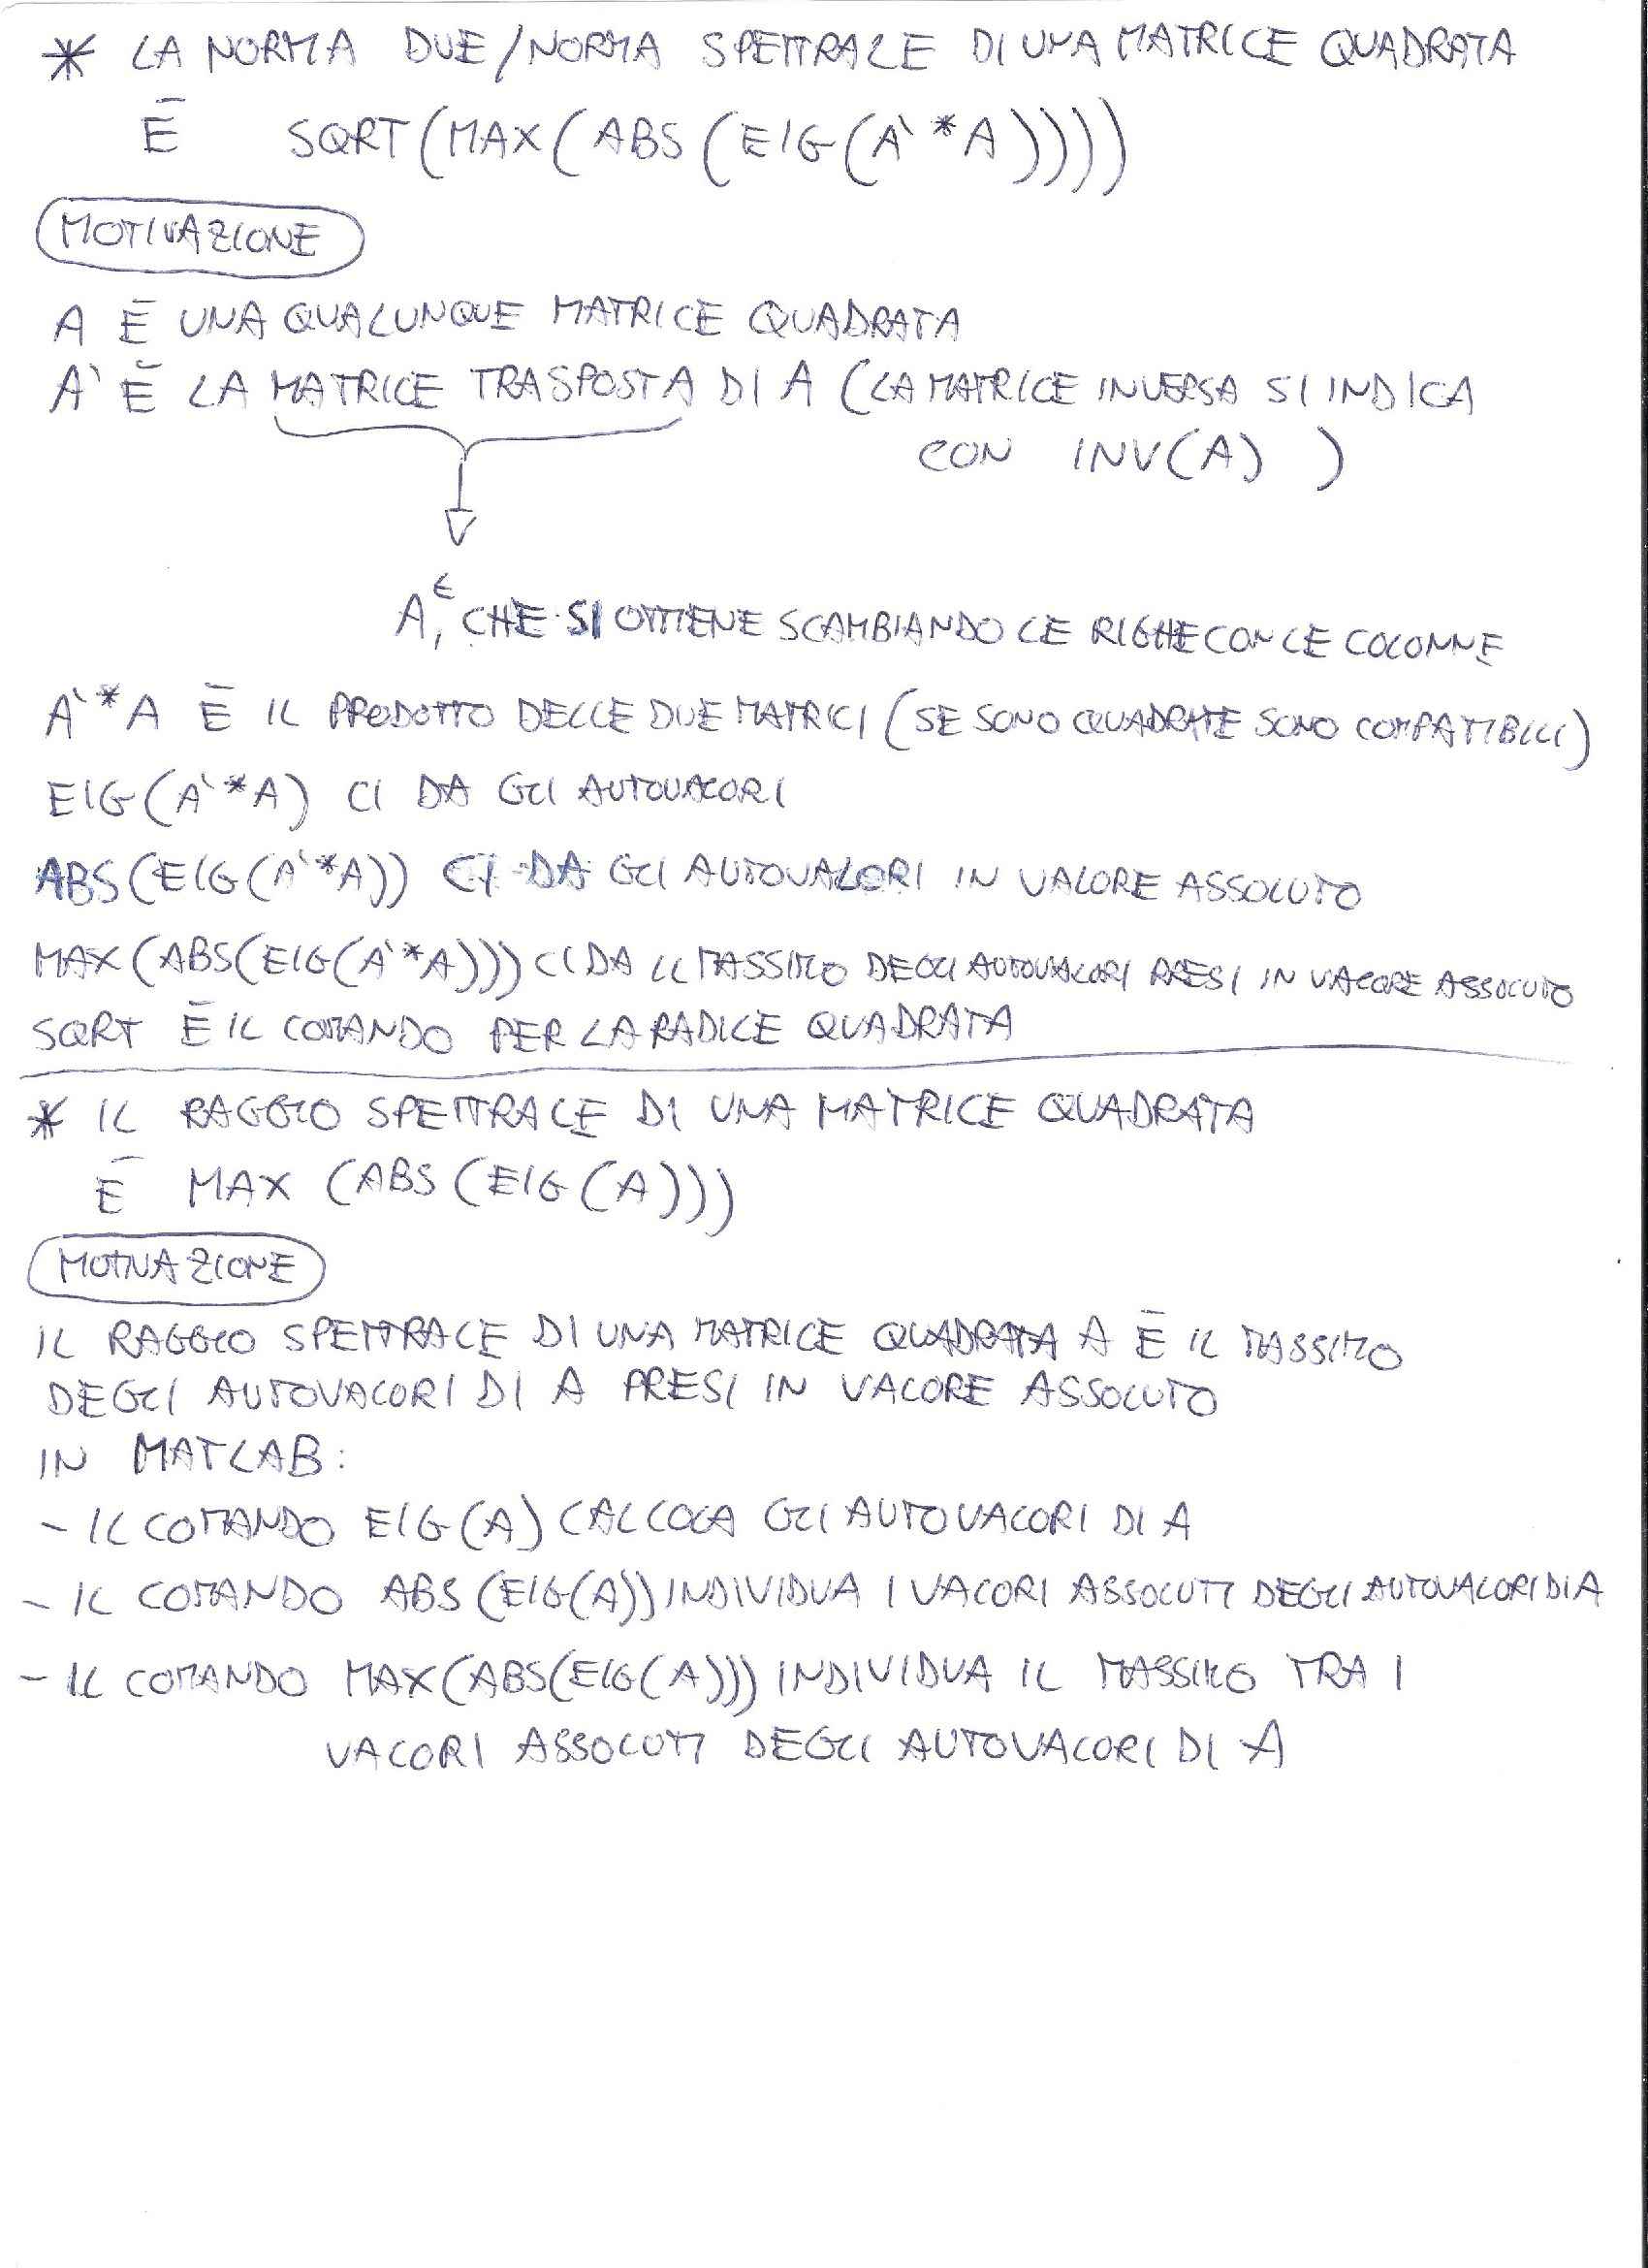 * LA NORMA DUE/NORMA SPETTRALE DI UNA MATRICE QUADRATA
È SQRT(MAX(ABS(EIG(A'*A))))
MOTIVAZIONE
A È UNA QUALUNQUE MATRICE QUADRATA
A' È LA MATRICE TRASPOSTA DI A (LA MATRICE INVERSA SI INDICA
CON INV(A) )
Aᵗ, CHE SI OTTIENE SCAMBIANDO LE RIGHE CON LE COLONNE
A'*A È IL PRODOTTO DELLE DUE MATRICI (SE SONO QUADRATE SONO COMPATIBILI)
EIG(A'*A) CI DA GLI AUTOVALORI
ABS(EIG(A'*A)) CI DA GLI AUTOVALORI IN VALORE ASSOLUTO
MAX(ABS(EIG(A'*A))) CI DA IL MASSIMO DEGLI AUTOVALORI PRESI IN VALORE ASSOLUTO
SQRT È IL COMANDO PER LA RADICE QUADRATA
* IL RAGGIO SPETTRALE DI UNA MATRICE QUADRATA
È MAX (ABS(EIG(A)))
MOTIVAZIONE
IL RAGGIO SPETTRALE DI UNA MATRICE QUADRATA A È IL MASSIMO
DEGLI AUTOVALORI DI A PRESI IN VALORE ASSOLUTO
IN MATLAB:
- IL COMANDO EIG(A) CALCOLA GLI AUTOVALORI DI A
- IL COMANDO ABS(EIG(A)) INDIVIDUA I VALORI ASSOLUTI DEGLI AUTOVALORI DI A
- IL COMANDO MAX(ABS(EIG(A))) INDIVIDUA IL MASSIMO TRA I
VALORI ASSOLUTI DEGLI AUTOVALORI DI A